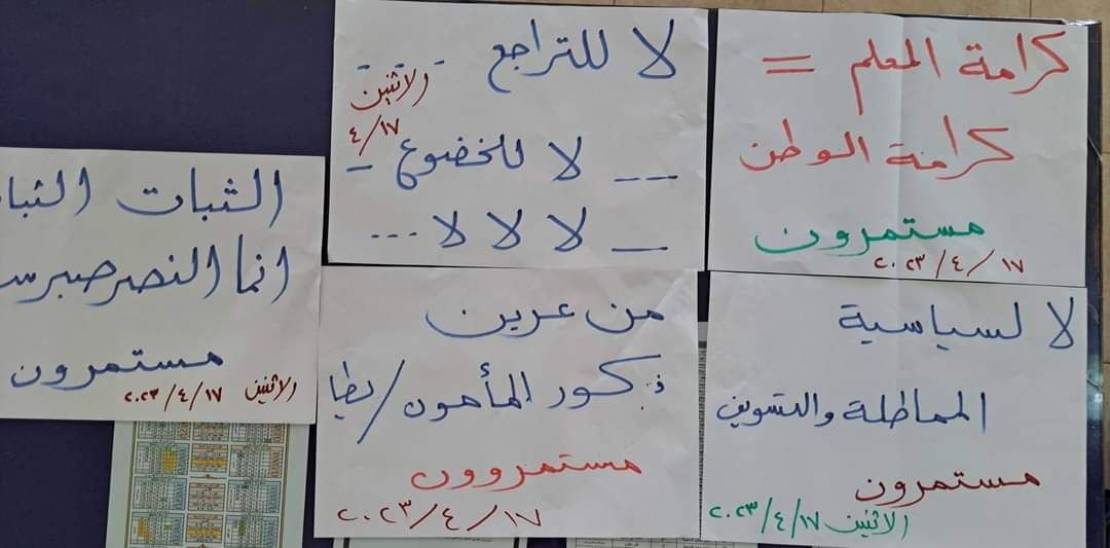 كرامة المعلم =
كرامة الوطن
مستمرون
٢٠٢٣/٤/١٧
لا للتراجع
الاثنين
٤/١٧
-- لا للخضوع -
- لا لا لا ...
الثبات
انما النصر صبر
مستمرون
الاثنين ٢٠٢٣/٤/١٧
لا لسياسية
المماطلة والتسويف
مستمرون
الاثنين ٢٠٢٣/٤/١٧
من عرين
ذكور المأمون/يطا
مستمروون
٢٠٢٣/٤/١٧